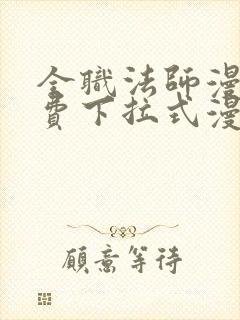 全職法師漫
費下拉式漫
願意等待